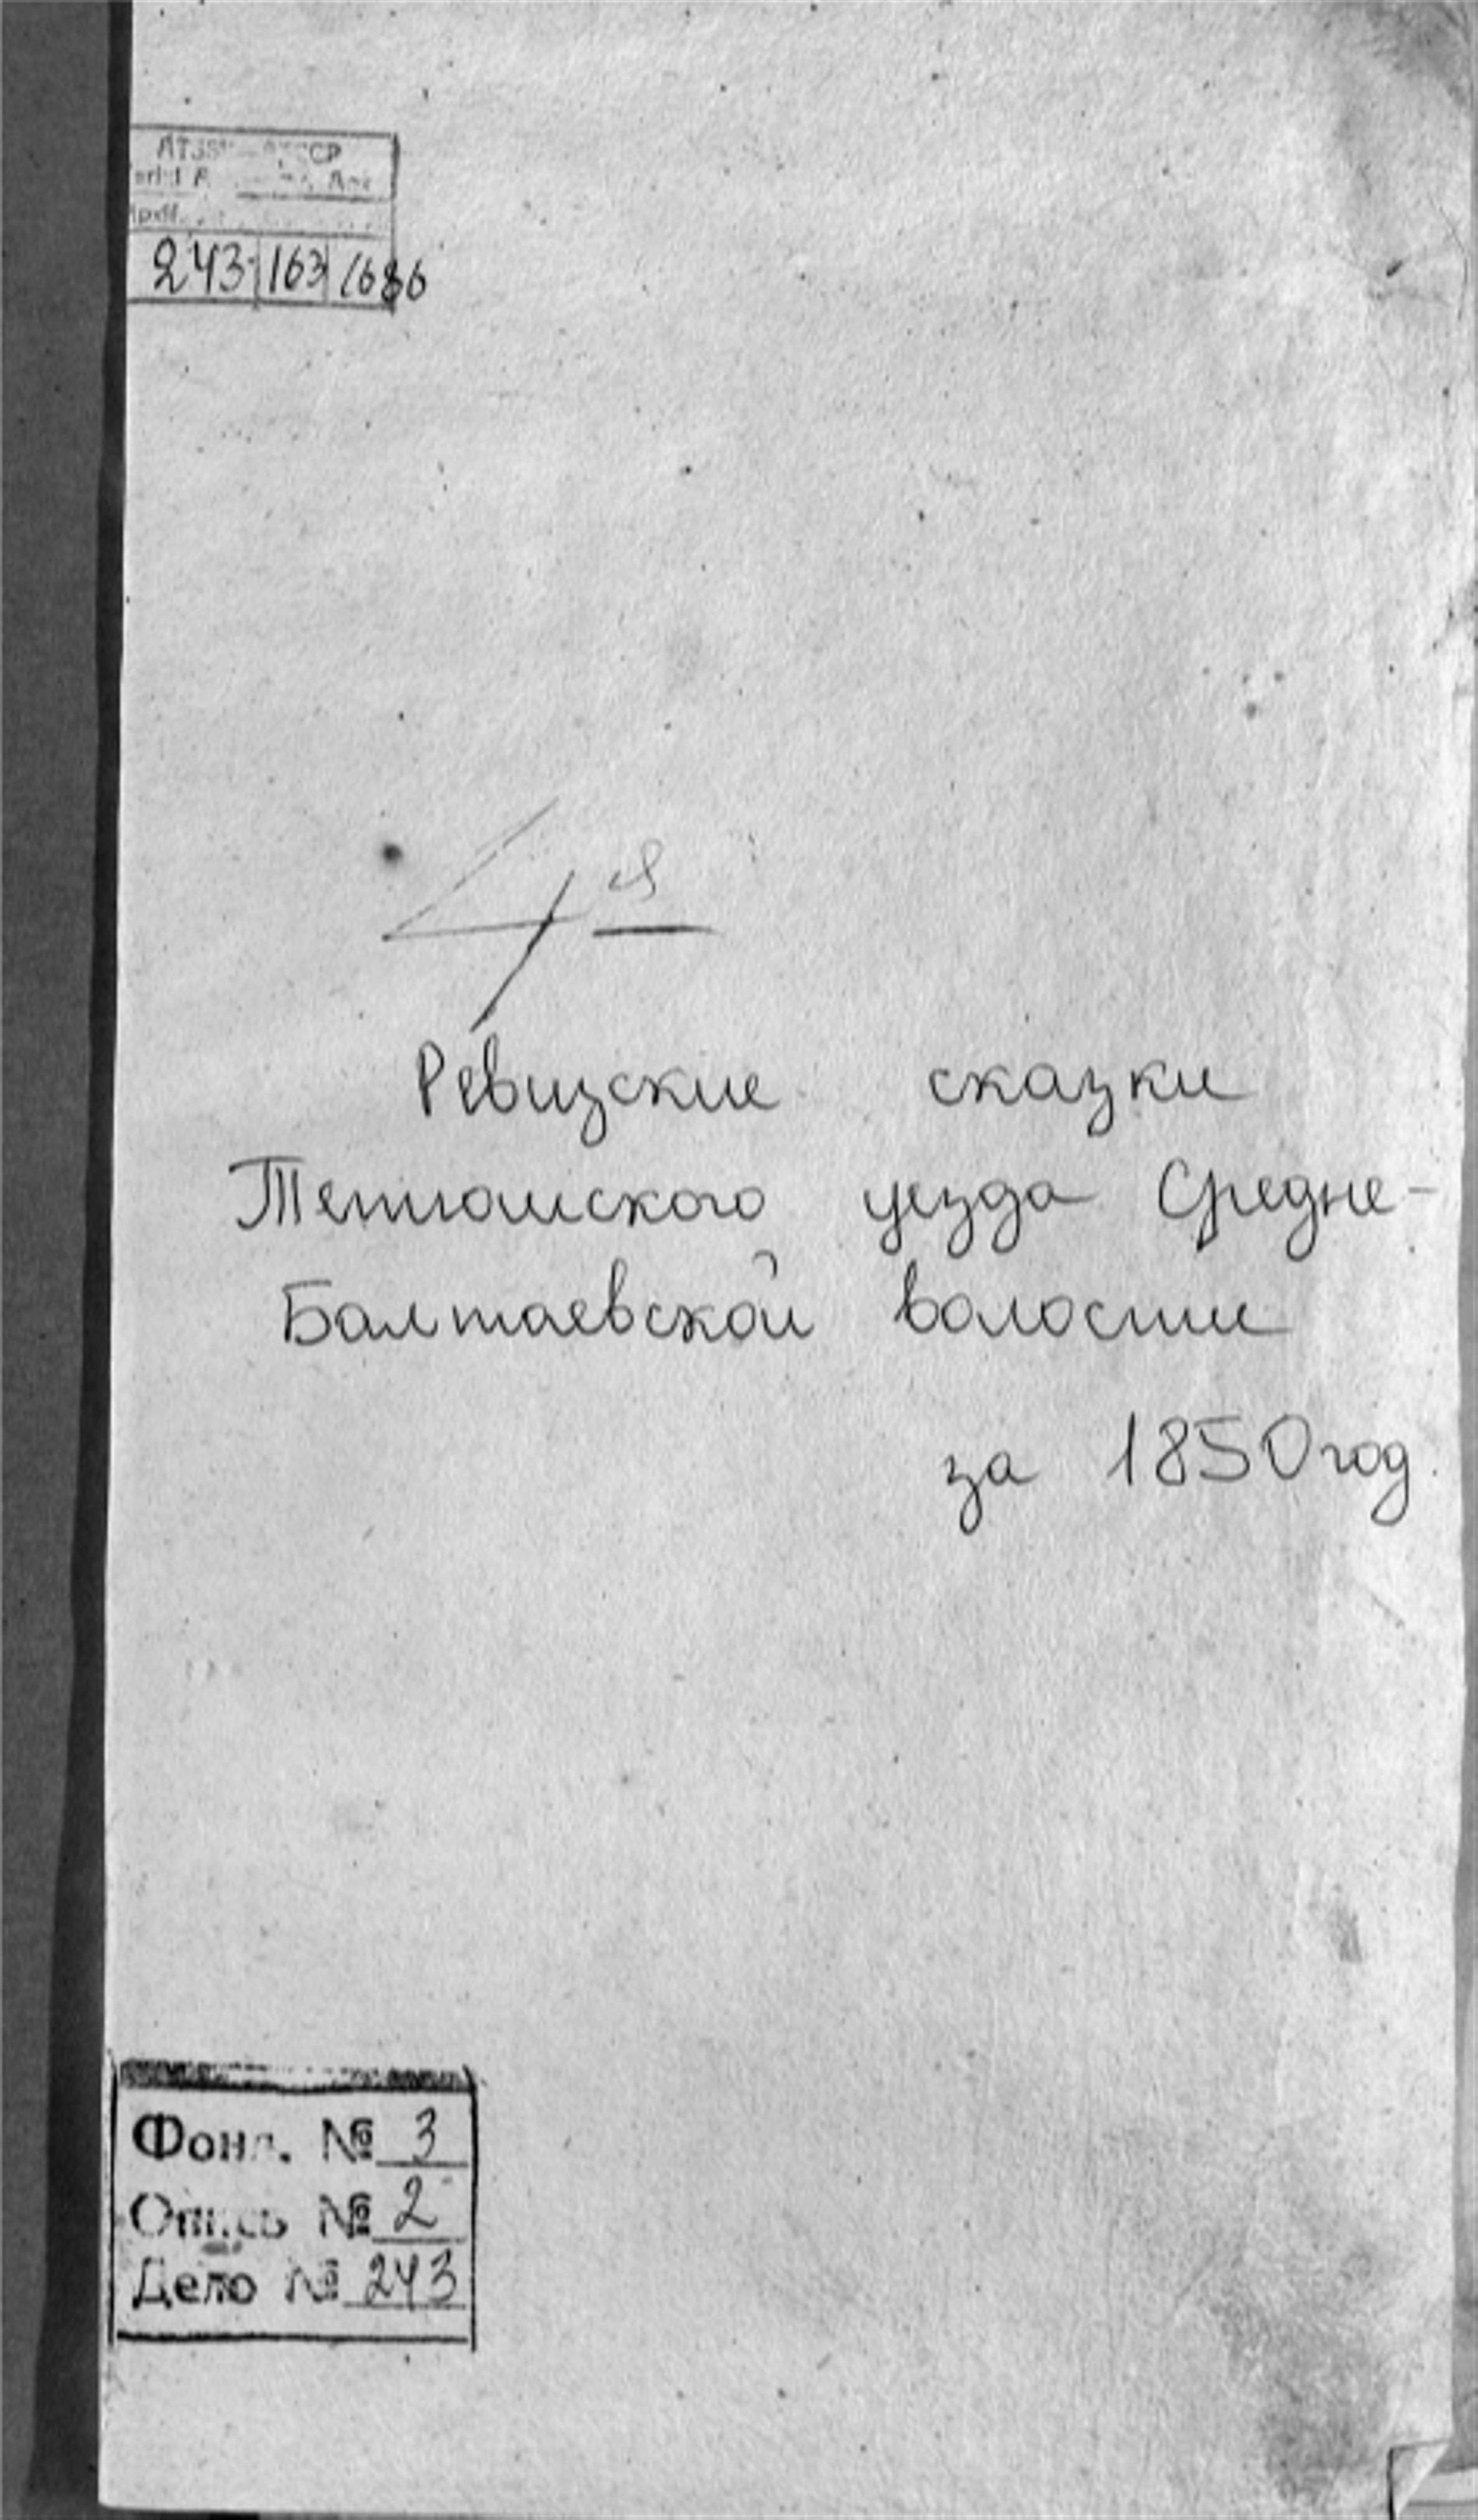 243 163 1686
4 я
Ревизские сказки
Тетюшского уезда Средне-
Балтаевской волости
за 1850 год.
Фонд. № 3
Опись № 2
Дело № 243